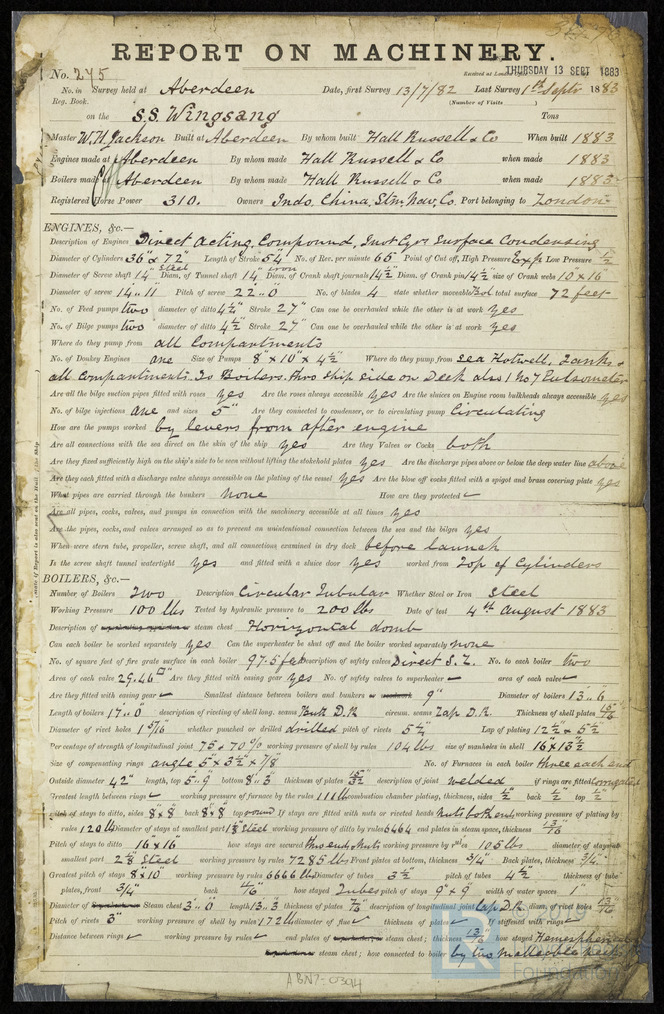 REPORT ON MACHINERY.
No. 245 Received at London THURSDAY 13 SEPT 1883
No. in Survey held at Aberdeen Date, first Survey 13/7/82 Last Survey 1st Septr 1883
Reg. Book. (Number of Visits )
on the S.S. Wingsang Tons
Master W.H. Jackson Built at Aberdeen By whom built Hall Russell & Co When built 1883
Engines made at Aberdeen By whom made Hall Russell & Co when made 1883
Boilers made at Aberdeen By whom made Hall Russell & Co when made 1883
Registered Horse Power 310. Owners Indo. China. Stm. Nav. Co. Port belonging to London
ENGINES, &c.—
Description of Engines Direct Acting, Compound, Invt Cylr Surface Condensing
Diameter of Cylinders 36" & 72" Length of Stroke 54" No. of Rev. per minute 65 Point of Cut off, High Pressure Exp Low Pressure 1/2
Diameter of Screw shaft 14" Steel Diam. of Tunnel shaft 14" iron Diam. of Crank shaft journals 14½ Diam. of Crank pin 14½" size of Crank webs 10 x 16
Diameter of screw 14.11" Pitch of screw 22'.0" No. of blades 4 state whether moveable total surface 72 feet
No. of Feed pumps two diameter of ditto 4¼" Stroke 27" Can one be overhauled while the other is at work yes
No. of Bilge pumps two diameter of ditto 4½ Stroke 27" Can one be overhauled while the other is at work yes
Where do they pump from all Compartments
No. of Donkey Engines one Size of Pumps 8" x 10" x 4½" Where do they pump from Sea Hotwell, Tanks &
all Compartments. To Boilers. thro ship side on Deck also 1 No 7 Pulsometer
Are all the bilge suction pipes fitted with roses yes Are the roses always accessible yes Are the sluices on Engine room bulkheads always accessible yes
No. of bilge injections one and sizes 5" Are they connected to condenser, or to circulating pump Circulating
How are the pumps worked by levers from after engine
Are all connections with the sea direct on the skin of the ship yes Are they Valves or Cocks both
Are they fixed sufficiently high on the ship's side to be seen without lifting the stokehold plates yes Are the discharge pipes above or below the deep water line above
Are they each fitted with a discharge valve always accessible on the plating of the vessel yes Are the blow off cocks fitted with a spigot and brass covering plate yes
What pipes are carried through the bunkers none How are they protected
Are all pipes, cocks, valves, and pumps in connection with the machinery accessible at all times yes
Are the pipes, cocks, and valves arranged so as to prevent an unintentional connection between the sea and the bilges yes
When were stern tube, propeller, screw shaft, and all connections examined in dry dock before launch
Is the screw shaft tunnel watertight yes and fitted with a sluice door yes worked from Top of Cylinders
BOILERS, &c.—
Number of Boilers Two Description Circular Tubular Whether Steel or Iron Steel
Working Pressure 100 lbs Tested by hydraulic pressure to 200 lbs Date of test 4th August 1883
Description of steam chest Horizontal domb
Can each boiler be worked separately yes Can the superheater be shut off and the boiler worked separately none
No. of square feet of fire grate surface in each boiler 97.5 feet Description of safety valves Direct S.L. No. to each boiler two
Area of each valve 29.46 Are they fitted with easing gear yes No. of safety valves to superheater area of each valve
Are they fitted with easing gear Smallest distance between boilers and bunkers 9" Diameter of boilers 13.6
Length of boilers 17'.0" description of riveting of shell long. seams Butt D.R. circum. seams Lap D.R. Thickness of shell plates 15/16
Diameter of rivet holes 1 5/16" whether punched or drilled drilled pitch of rivets 5¼" Lap of plating 12½ x 5½
Percentage of strength of longitudinal joint 75 & 70% working pressure of shell by rules 104 lbs size of manholes in shell 16" x 13½
Size of compensating rings angle 5" x 3½" x 7/8" No. of Furnaces in each boiler three each end
Outside diameter 42" length, top 5'.9" bottom 8'.3" thickness of plates 15/32 description of joint welded if rings are fitted corrugated
Greatest length between rings working pressure of furnace by the rules 111 lb combustion chamber plating, thickness, sides ½" back ½" top ½"
pitch of stays to ditto, sides 8" x 8" back 8" x 8" top round If stays are fitted with nuts or riveted heads nuts both ends working pressure of plating by
rules 120 lb Diameter of stays at smallest part 1⅜ Steel working pressure of ditto by rules 6464 end plates in steam space, thickness 13/16
Pitch of stays to ditto 16" x 16" how stays are secured thro ends & nuts working pressure by rules 105 lbs diameter of stays at
smallest part 2⅜ Steel working pressure by rules 7285 lb Front plates at bottom, thickness 3/4" Back plates, thickness 3/4"
Greatest pitch of stays 8 x 10 working pressure by rules 6666 lb Diameter of tubes 3½ pitch of tubes 4½" thickness of tube
plates, front 3/4" back 11/16 how stayed Tubes pitch of stays 9" x 9 width of water spaces 1"
Diameter of Steam chest 3'.0 length 13'.3 thickness of plates description of longitudinal joint Lap D.R. diam. of rivet holes 13/16
Pitch of rivets 3" working pressure of shell by rules 172 lb Diameter of flue thickness of plates If stiffened with rings
Distance between rings working pressure by rules end plates of steam chest; thickness 13/16 how stayed Hemispherical
steam chest; how connected to boiler by two malleable necks
ABN7-0304